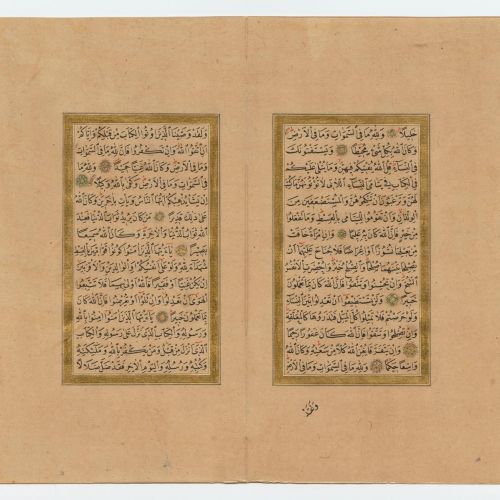 خَلِيلًا وَلِلّٰهِ مَا فِي السَّمٰوَاتِ وَمَا فِي الْاَرْضِ
وَكَانَ اللّٰهُ بِكُلِّ شَيْءٍ مُحِيطًا وَيَسْتَفْتُونَكَ
فِي النِّسَاءِ قُلِ اللّٰهُ يُفْتِيكُمْ فِيهِنَّ وَمَا يُتْلٰى عَلَيْكُمْ
فِي الْكِتَابِ فِي يَتَامَى النِّسَاءِ اللَّاتِي لَا تُؤْتُونَهُنَّ مَا كُتِبَ
لَهُنَّ وَتَرْغَبُونَ اَنْ تَنْكِحُوهُنَّ وَالْمُسْتَضْعَفِينَ مِنَ
الْوِلْدَانِ وَاَنْ تَقُومُوا لِلْيَتَامٰى بِالْقِسْطِ وَمَا تَفْعَلُوا
مِنْ خَيْرٍ فَاِنَّ اللّٰهَ كَانَ بِهِ عَلِيمًا وَاِنِ امْرَاَةٌ خَافَتْ
مِنْ بَعْلِهَا نُشُوزًا اَوْ اِعْرَاضًا فَلَا جُنَاحَ عَلَيْهِمَا اَنْ
يُصْلِحَا بَيْنَهُمَا صُلْحًا وَالصُّلْحُ خَيْرٌ وَاُحْضِرَتِ الْاَنْفُسُ
الشُّحَّ وَاِنْ تُحْسِنُوا وَتَتَّقُوا فَاِنَّ اللّٰهَ كَانَ بِمَا تَعْمَلُونَ
خَبِيرًا وَلَنْ تَسْتَطِيعُوا اَنْ تَعْدِلُوا بَيْنَ النِّسَاءِ
وَلَوْ حَرَصْتُمْ فَلَا تَمِيلُوا كُلَّ الْمَيْلِ فَتَذَرُوهَا كَالْمُعَلَّقَةِ
وَاِنْ تُصْلِحُوا وَتَتَّقُوا فَاِنَّ اللّٰهَ كَانَ غَفُورًا رَحِيمًا
وَاِنْ يَتَفَرَّقَا يُغْنِ اللّٰهُ كُلًّا مِنْ سَعَتِهِ وَكَانَ اللّٰهُ
وَاسِعًا حَكِيمًا وَلِلّٰهِ مَا فِي السَّمٰوَاتِ وَمَا فِي الْاَرْضِ
ولقد
وَلَقَدْ وَصَّيْنَا الَّذِينَ اُوتُوا الْكِتَابَ مِنْ قَبْلِكُمْ وَاِيَّاكُمْ
اَنِ اتَّقُوا اللّٰهَ وَاِنْ تَكْفُرُوا فَاِنَّ لِلّٰهِ مَا فِي السَّمٰوَاتِ
وَمَا فِي الْاَرْضِ وَكَانَ اللّٰهُ غَنِيًّا حَمِيدًا وَلِلّٰهِ مَا
فِي السَّمٰوَاتِ وَمَا فِي الْاَرْضِ وَكَفٰى بِاللّٰهِ وَكِيلًا
اِنْ يَشَاْ يُذْهِبْكُمْ اَيُّهَا النَّاسُ وَيَاْتِ بِاٰخَرِينَ وَكَانَ اللّٰهُ
عَلٰى ذٰلِكَ قَدِيرًا مَنْ كَانَ يُرِيدُ ثَوَابَ الدُّنْيَا فَعِنْدَ
اللّٰهِ ثَوَابُ الدُّنْيَا وَالْاٰخِرَةِ وَكَانَ اللّٰهُ سَمِيعًا
بَصِيرًا يَا اَيُّهَا الَّذِينَ اٰمَنُوا كُونُوا قَوَّامِينَ بِالْقِسْطِ
شُهَدَاءَ لِلّٰهِ وَلَوْ عَلٰى اَنْفُسِكُمْ اَوِ الْوَالِدَيْنِ وَالْاَقْرَبِينَ
اِنْ يَكُنْ غَنِيًّا اَوْ فَقِيرًا فَاللّٰهُ اَوْلٰى بِهِمَا فَلَا تَتَّبِعُوا
الْهَوٰى اَنْ تَعْدِلُوا وَاِنْ تَلْوُوا اَوْ تُعْرِضُوا فَاِنَّ اللّٰهَ كَانَ
بِمَا تَعْمَلُونَ خَبِيرًا يَا اَيُّهَا الَّذِينَ اٰمَنُوا اٰمِنُوا بِاللّٰهِ
وَرَسُولِهِ وَالْكِتَابِ الَّذِي نَزَّلَ عَلٰى رَسُولِهِ وَالْكِتَابِ
الَّذِي اَنْزَلَ مِنْ قَبْلُ وَمَنْ يَكْفُرْ بِاللّٰهِ وَمَلٰئِكَتِهِ
وَكُتُبِهِ وَرُسُلِهِ وَالْيَوْمِ الْاٰخِرِ فَقَدْ ضَلَّ ضَلَالًا